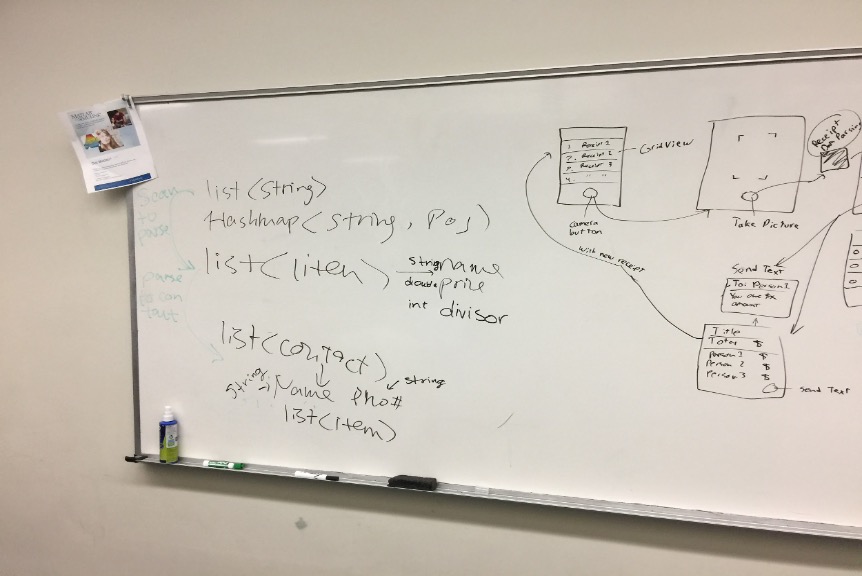 list(String)
Hashmap(String, Pos)
list(Item)
String name
double price
int divisor
list(contact)
String Name Pho# String
list(item)
Scan
to
parse
parse
to
1. Receipt 1
2. Receipt 2
3. Receipt 3
4. " "
GridView
camera
button
Take Picture
Receipt
Parsing
With new receipt
Send Text
To: Person 1
You owe $x
amount
Title
Total $
Person 1 $
Person 2 $
Person 3 $
Send Text